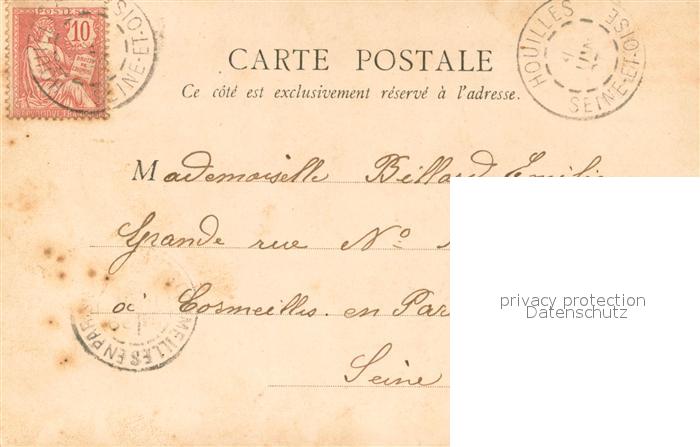 POSTES
10
HOUILLES
SEINE-ET-OISE
CARTE POSTALE
Ce côté est exclusivement réservé à l'adresse.
Mademoiselle Billard Emilie
Grande rue No
à Cormeilles. en Par
Seine
MEILLES EN PAR
privacy protection
Datenschutz